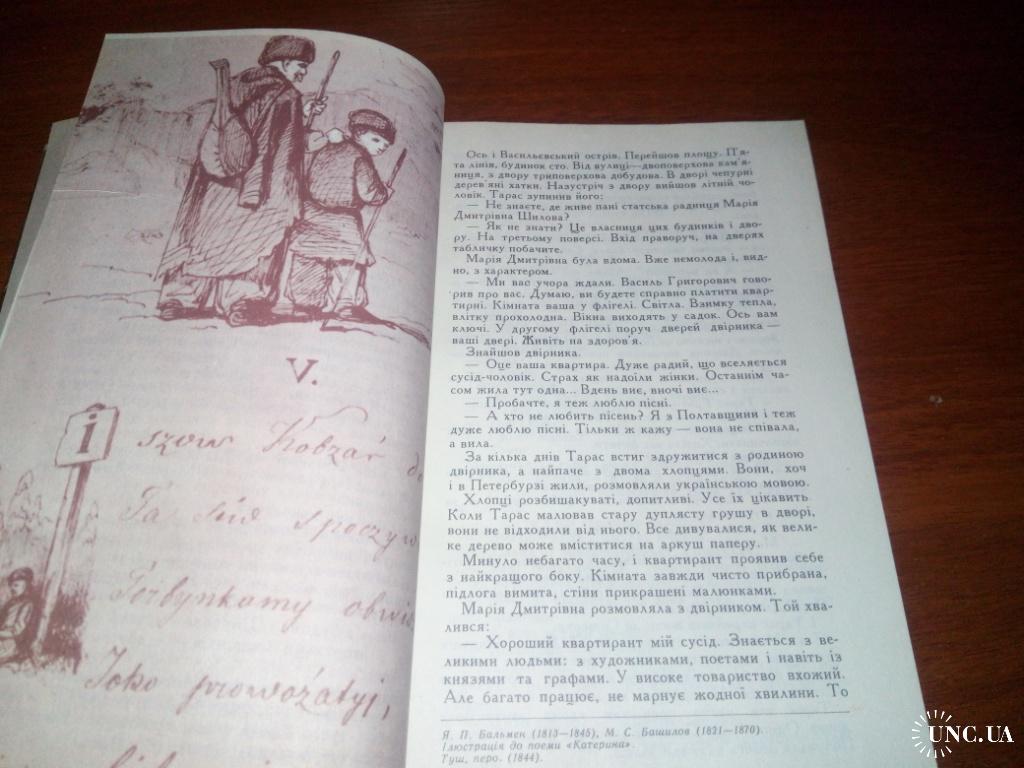 V.
і
szow Kobzar do
Ta siw spoczyw
Torbynkamy obwi
Joho prowożatyj,
Ось і Васильєвський острів. Перейшов площу. П'я-
та лінія, будинок сто. Від вулиці—двоповерхова кам'я-
ниця, з двору триповерхова добудова. В дворі чепурні
дерев'яні хатки. Назустріч з двору вийшов літній чо-
ловік. Тарас зупинив його:
— Не знаєте, де живе пані статська радниця Марія
Дмитрівна Шилова?
— Як не знати? Це власниця цих будинків і дво-
ру. На третьому поверсі. Вхід праворуч, на дверях
табличку побачите.
Марія Дмитрівна була вдома. Вже немолода і, вид-
но, з характером.
— Ми вас учора ждали. Василь Григорович гово-
рив про вас. Думаю, ви будете справно платити квар-
тирні. Кімната ваша у флігелі. Світла. Взимку тепла,
влітку прохолодна. Вікна виходять у садок. Ось вам
ключі. У другому флігелі поруч дверей двірника —
ваші двері. Живіть на здоров'я.
Знайшов двірника.
— Оце ваша квартира. Дуже радий, що вселяється
сусід-чоловік. Страх як надоїли жінки. Останнім ча-
сом жила тут одна... Вдень виє, вночі виє...
— Пробачте, я теж люблю пісні.
— А хто не любить пісень? Я з Полтавщини і теж
дуже люблю пісні. Тільки ж кажу — вона не співала,
а вила.
За кілька днів Тарас встиг здружитися з родиною
двірника, а найпаче з двома хлопцями. Вони, хоч
і в Петербурзі жили, розмовляли українською мовою.
Хлопці розбишакуваті, допитливі. Усе їх цікавить
Коли Тарас малював стару дуплясту грушу в дворі,
вони не відходили від нього. Все дивувалися, як вели-
ке дерево може вміститися на аркуш паперу.
Минуло небагато часу, і квартирант проявив себе
з найкращого боку. Кімната завжди чисто прибрана,
підлога вимита, стіни прикрашені малюнками.
Марія Дмитрівна розмовляла з двірником. Той хва-
лився:
— Хороший квартирант мій сусід. Знається з ве-
ликими людьми: з художниками, поетами і навіть із
князями та графами. У високе товариство вхожий.
Але багато працює, не марнує жодної хвилини. То
Я. П. Бальмен (1813—1845), М. С. Башилов (1821—1870).
Ілюстрація до поеми «Катерина».
Туш, перо. (1844).
UNC.UA